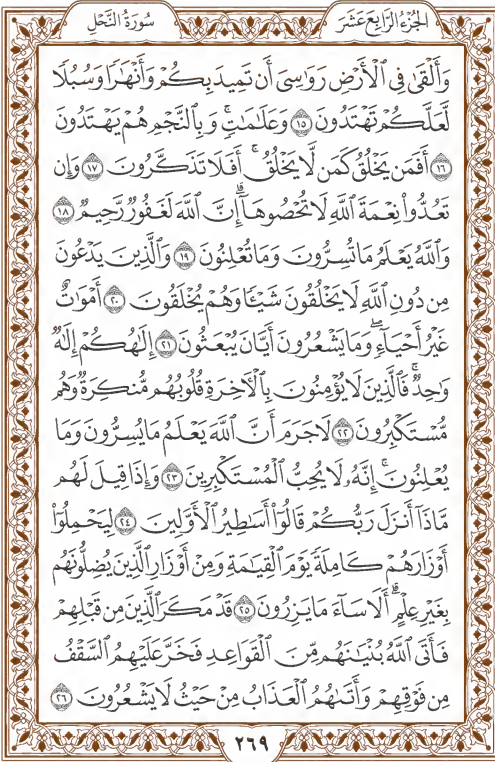 الجُزْءُ الرَّابِعَ عَشَرَ
سُورَةُ النَّحْلِ
وَأَلْقَىٰ فِي ٱلْأَرْضِ رَوَٰسِىَ أَن تَمِيدَ بِكُمْ وَأَنْهَٰرًا وَسُبُلًا
لَّعَلَّكُمْ تَهْتَدُونَ ١٥ وَعَلَٰمَٰتٍ ۚ وَبِٱلنَّجْمِ هُمْ يَهْتَدُونَ
١٦ أَفَمَن يَخْلُقُ كَمَن لَّا يَخْلُقُ ۗ أَفَلَا تَذَكَّرُونَ ١٧ وَإِن
تَعُدُّوا۟ نِعْمَةَ ٱللَّهِ لَا تُحْصُوهَآ ۗ إِنَّ ٱللَّهَ لَغَفُورٌ رَّحِيمٌ ١٨
وَٱللَّهُ يَعْلَمُ مَا تُسِرُّونَ وَمَا تُعْلِنُونَ ١٩ وَٱلَّذِينَ يَدْعُونَ
مِن دُونِ ٱللَّهِ لَا يَخْلُقُونَ شَيْـًٔا وَهُمْ يُخْلَقُونَ ٢٠ أَمْوَٰتٌ
غَيْرُ أَحْيَآءٍ ۖ وَمَا يَشْعُرُونَ أَيَّانَ يُبْعَثُونَ ٢١ إِلَٰهُكُمْ إِلَٰهٌ
وَٰحِدٌ ۚ فَٱلَّذِينَ لَا يُؤْمِنُونَ بِٱلْأَخِرَةِ قُلُوبُهُم مُّنكِرَةٌ وَهُم
مُّسْتَكْبِرُونَ ٢٢ لَا جَرَمَ أَنَّ ٱللَّهَ يَعْلَمُ مَا يُسِرُّونَ وَمَا
يُعْلِنُونَ ۚ إِنَّهُۥ لَا يُحِبُّ ٱلْمُسْتَكْبِرِينَ ٢٣ وَإِذَا قِيلَ لَهُم
مَّاذَآ أَنزَلَ رَبُّكُمْ قَالُوٓا۟ أَسَٰطِيرُ ٱلْأَوَّلِينَ ٢٤ لِيَحْمِلُوٓا۟
أَوْزَارَهُمْ كَامِلَةً يَوْمَ ٱلْقِيَٰمَةِ وَمِنْ أَوْزَارِ ٱلَّذِينَ يُضِلُّونَهُم
بِغَيْرِ عِلْمٍ ۗ أَلَا سَآءَ مَا يَزِرُونَ ٢٥ قَدْ مَكَرَ ٱلَّذِينَ مِن قَبْلِهِمْ
فَأَتَى ٱللَّهُ بُنْيَٰنَهُم مِّنَ ٱلْقَوَاعِدِ فَخَرَّ عَلَيْهِمُ ٱلسَّقْفُ
مِن فَوْقِهِمْ وَأَتَىٰهُمُ ٱلْعَذَابُ مِنْ حَيْثُ لَا يَشْعُرُونَ ٢٦
٢٦٩